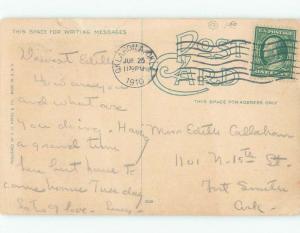 THIS SPACE FOR WRITING MESSAGES
POST CARD
THIS SPACE FOR ADDRESS ONLY
OKLAHOMA
JUN 25
1130PM
1910
U.S. POSTAGE
Dearest Edith
How are you
and what are
you doing. Have
a grand time
here but have to
come home Tuesday
Lots of love.
Miss Edith Callahan
1101 N-15th St.
Fort Smith
Ark-